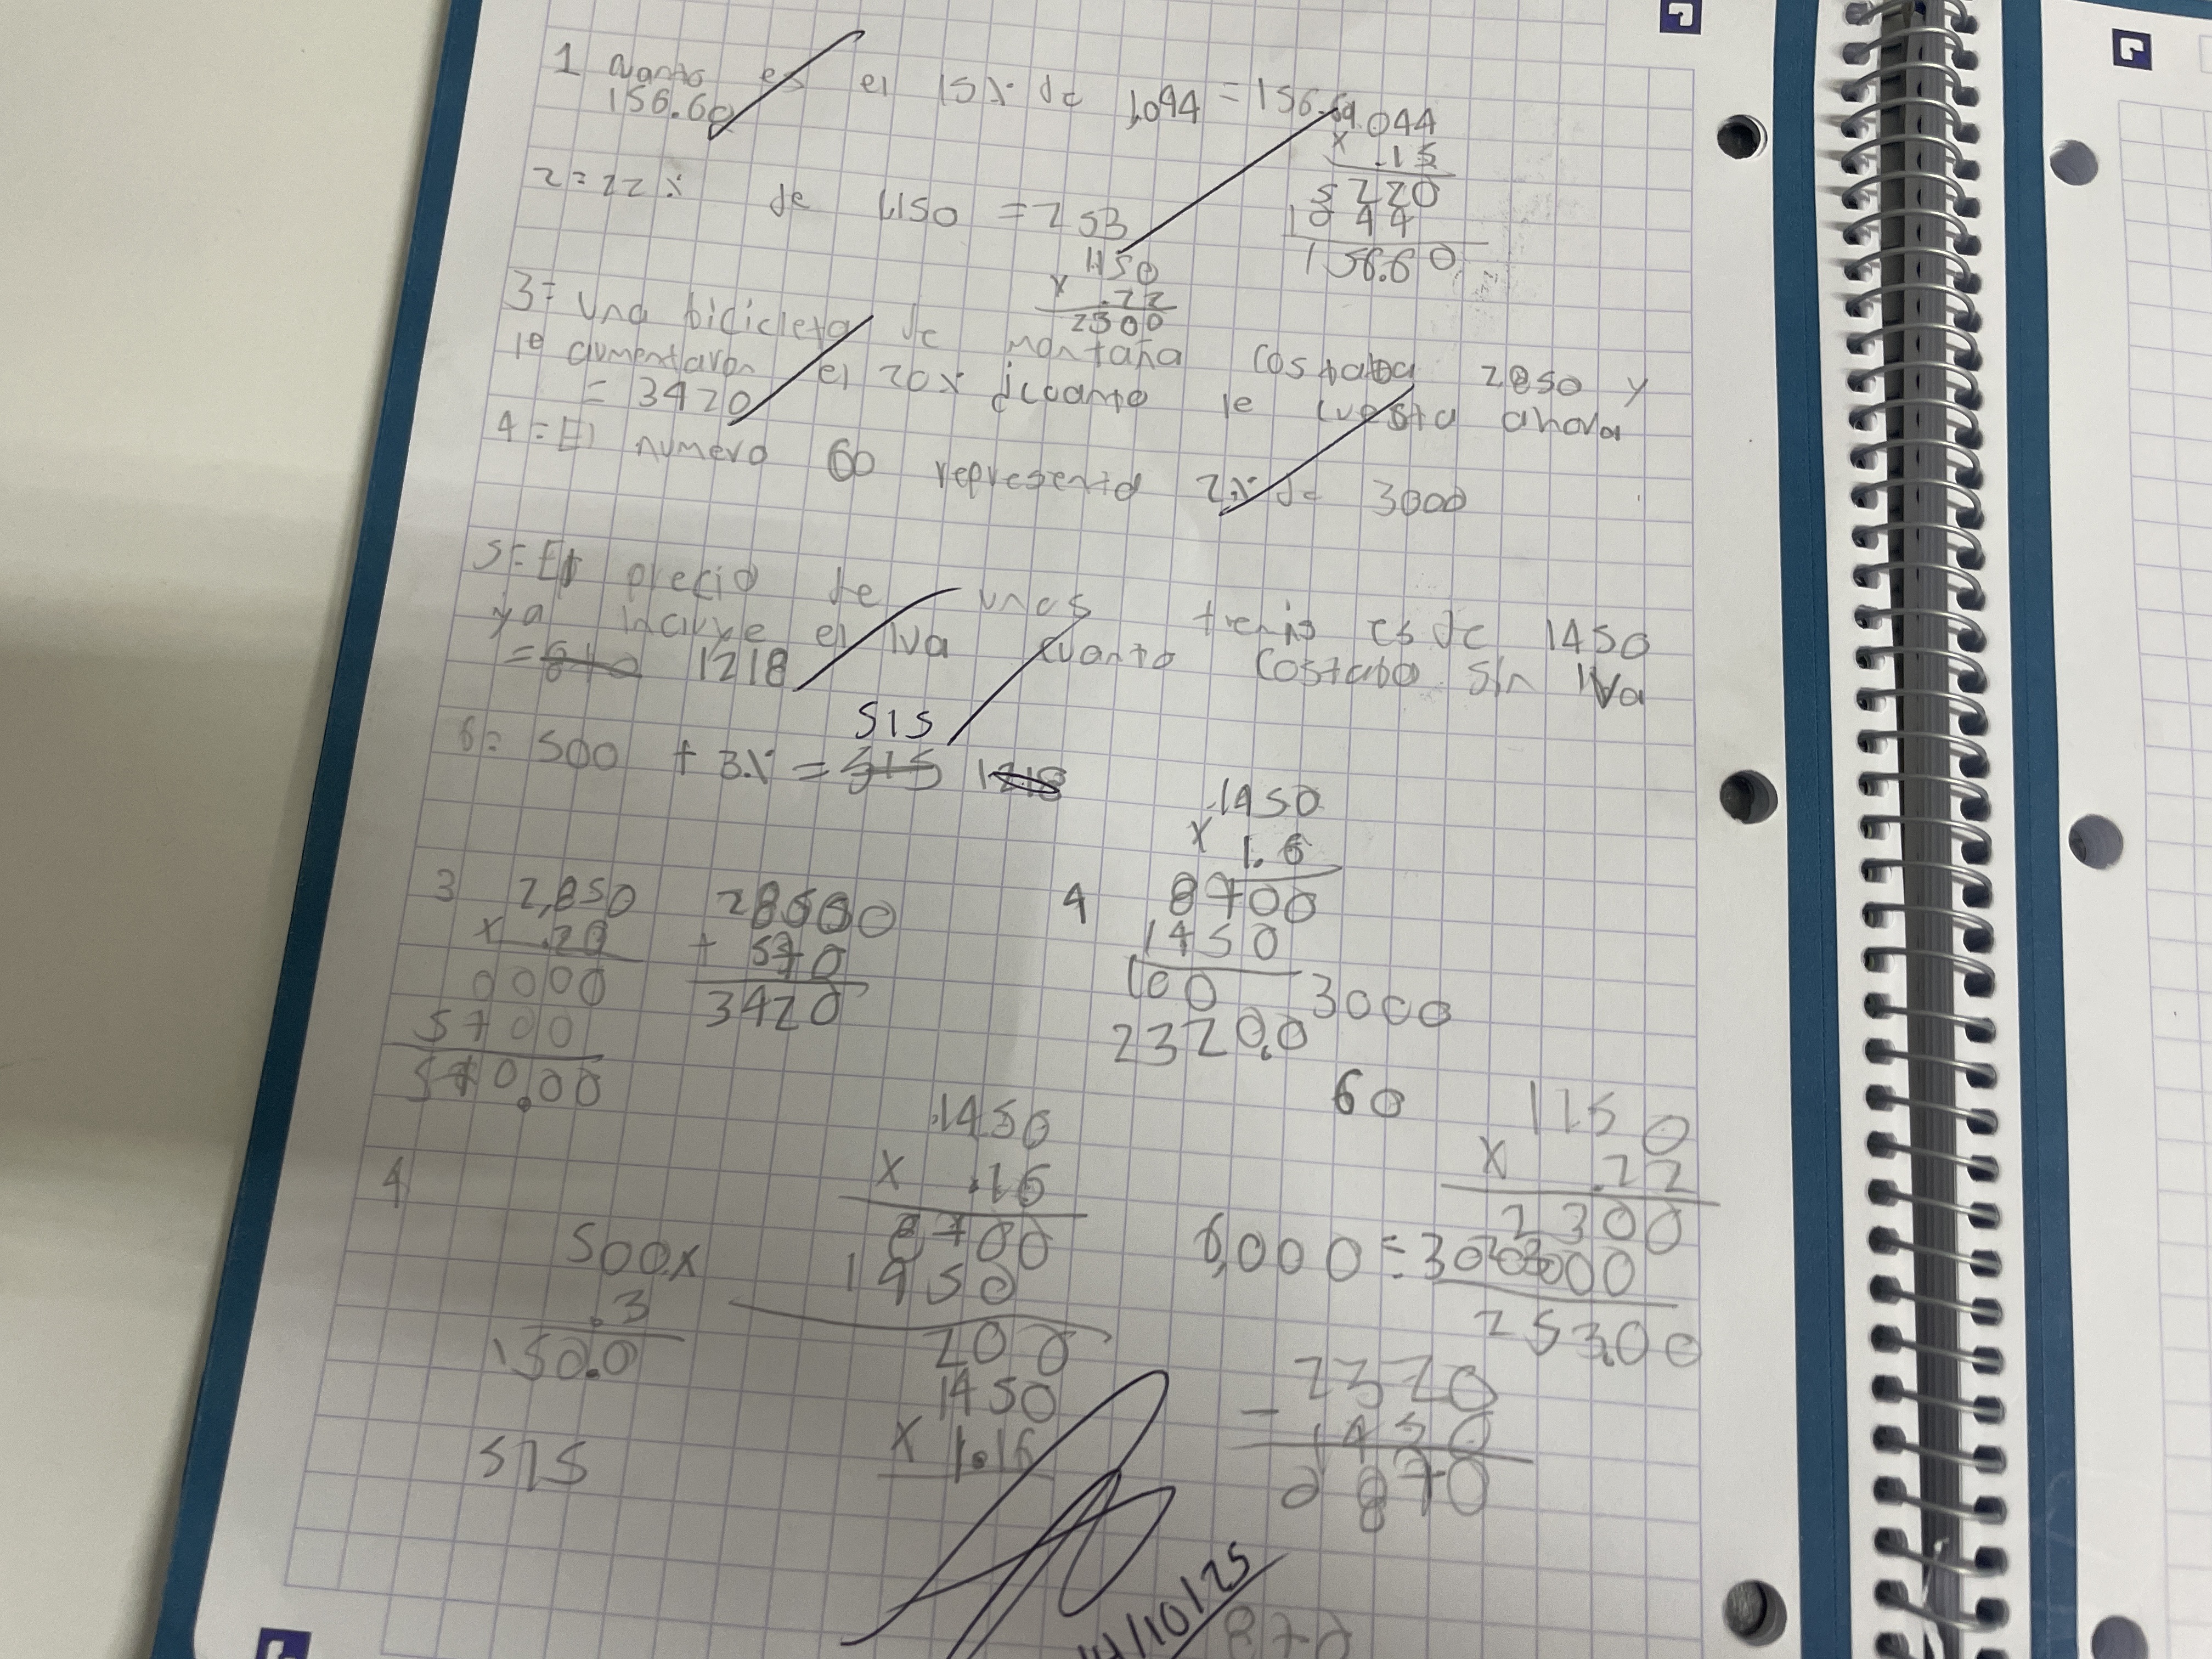 1 cuanto es el 15% de 1,044 = 156.60
156.60
1,044
x .15
5220
1044
156.60
2= 22% de 1,150 = 253
1150
x .22
2300
3= una bicicleta de montaña costaba 2850 y
le aumentaron el 20% ¿cuanto le cuesta ahora
= 3420
4= El numero 60 representa 2% de 3000
5= El precio de unos tenis es de 1450
ya incluye el iva cuanto costaba sin iva
= 870 1218
515
6= 500 + 3% = 515 1218
1450
x 1.6
4 8700
1450
100 3000
2320.0
3 2,850
x .20
0000
5700
570.00
28500
+ 570
3420
60
1150
x .22
2300
6,000 = 30
253.00
4
1450
x .16
8700
1450
200
1450
x 1.16
500x
.3
150.0
515
2320
- 1450
0870
/10/25